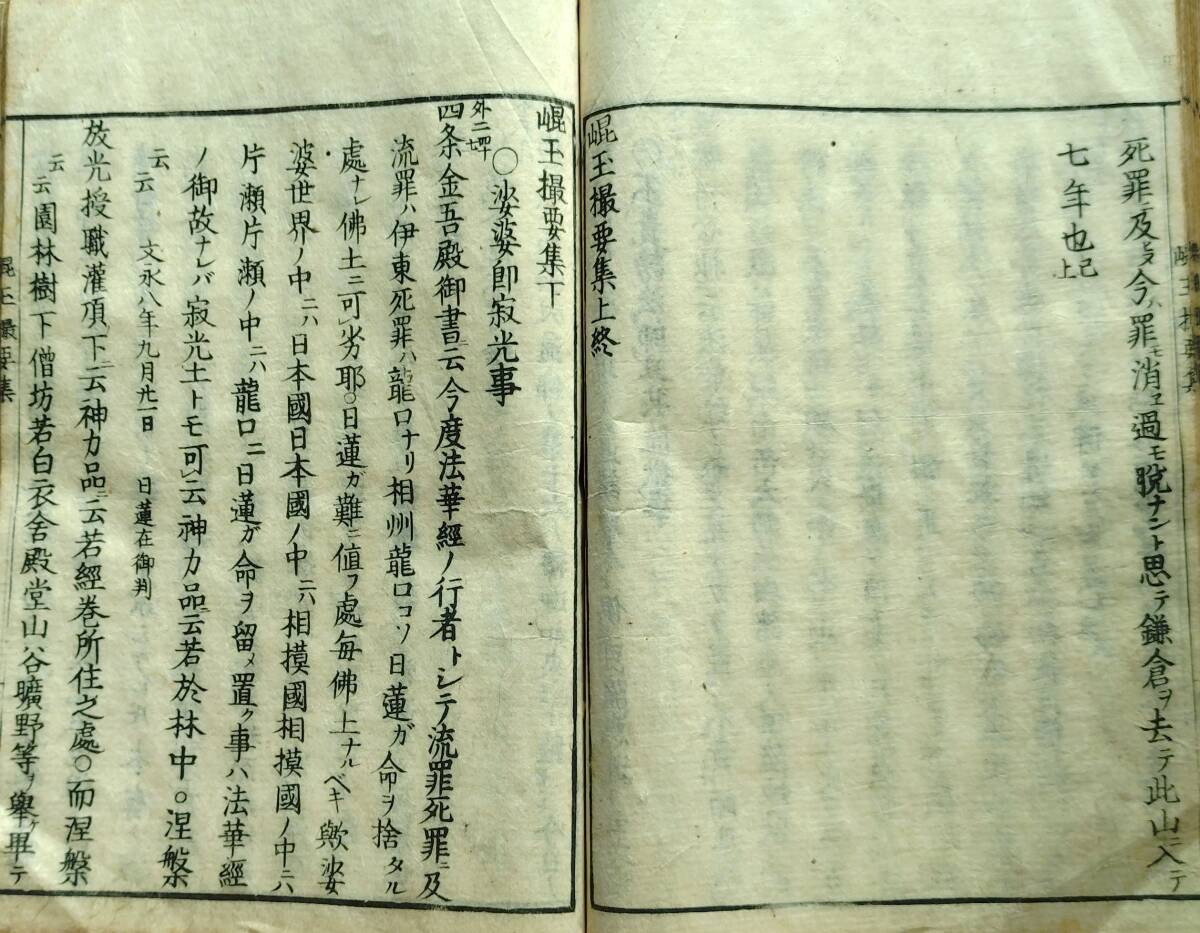 死罪ニ及ヒヌ今ハ罪モ消エ過モ脱ナント思テ鎌倉ヲ去テ此山ニ入テ
七年也已上
崐玉撮要集上終
崐玉撮要集下
○娑婆即寂光事
外二四十七
四条金吾殿御書ニ云今度法華經ノ行者トシテ流罪死罪ニ及
流罪ハ伊東死罪ハ龍口ナリ相州龍口コソ日蓮ガ命ヲ捨タル
處ナレ佛土ニ可劣耶○日蓮ガ難ニ値フ處毎佛土ナルベキ歟娑
婆世界ノ中ニハ日本國日本國ノ中ニハ相摸國相摸國ノ中ニハ
片瀬片瀬ノ中ニハ龍口ニ日蓮ガ命ヲ留メ置ク事ハ法華經
ノ御故ナレバ寂光土トモ可云神力品ニ云若於林中○涅槃
云云 文永八年九月廿一日 日蓮在御判
放光授職灌頂下ニ云神力品ニ云若經卷所住之處○而涅槃
云云園林樹下僧坊若白衣舍殿堂山谷曠野等ヲ舉ケ畢テ
崐玉撮要集